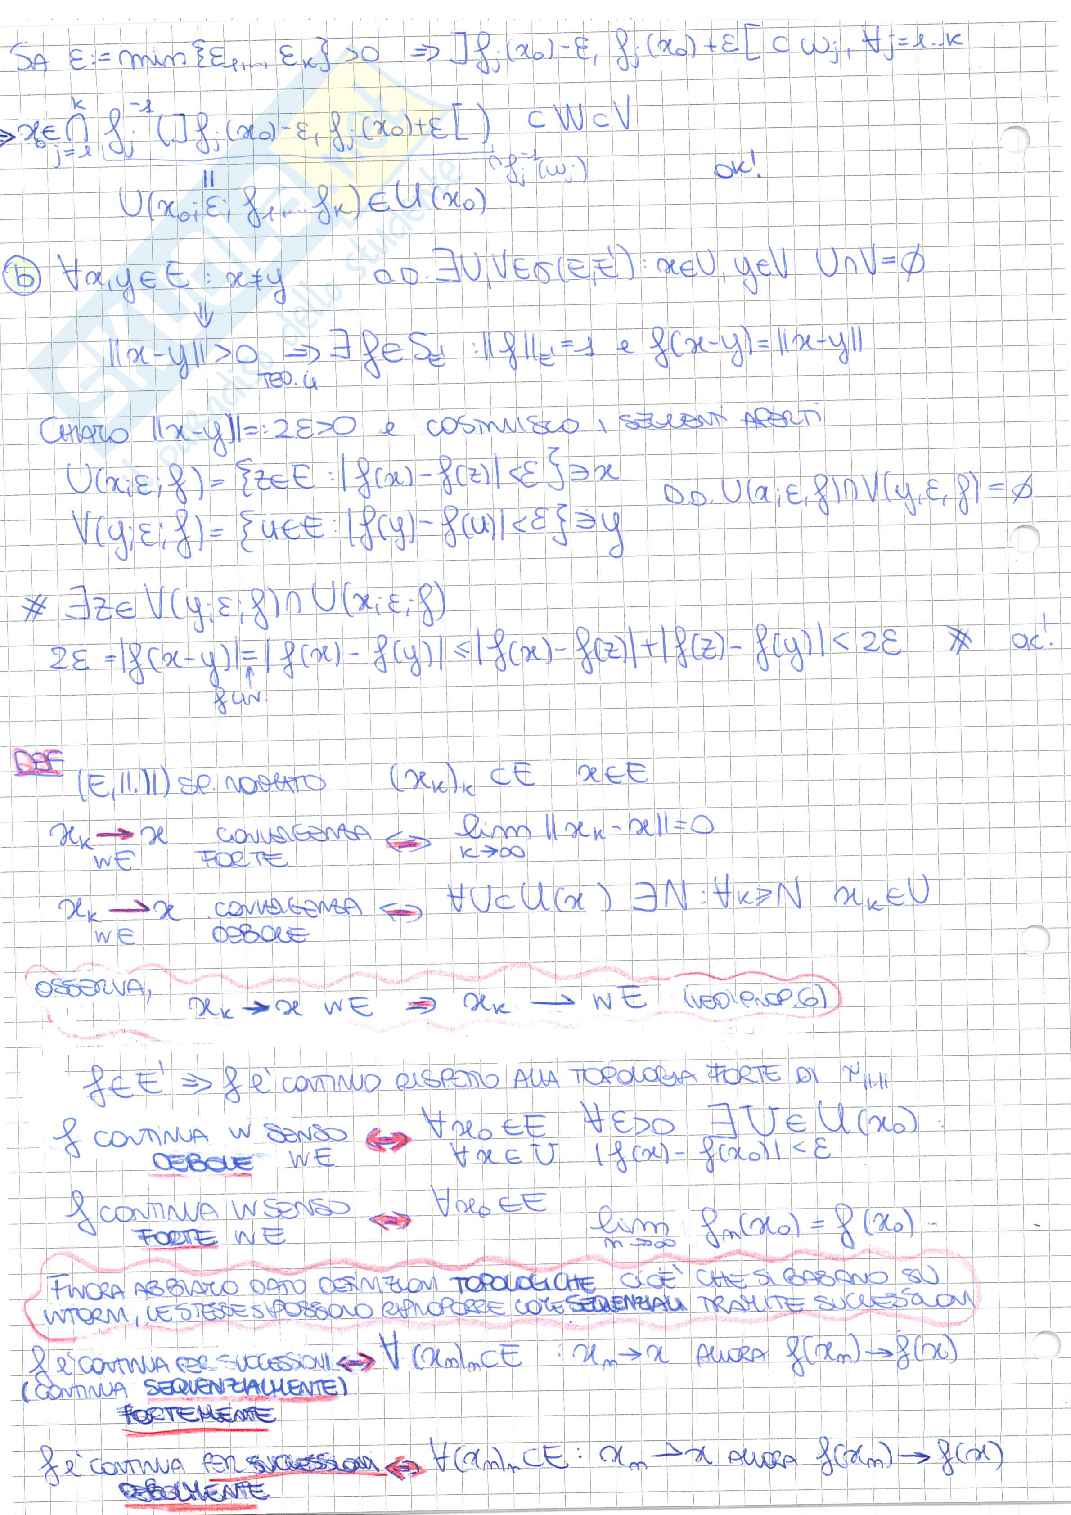 SIA ε := min{ε₁,..., ε_k} > 0 ⇒ ]f_j(x₀)-ε, f_j(x₀)+ε[ ⊂ ω_j, ∀j=1..k
⇒ x₀∈ ⋂_{j=1}^{k} f_j^{-1}(]f_j(x₀)-ε, f_j(x₀)+ε[) ⊂ W ⊂ V
∩ f_j^{-1}(ω_j) OK!
U(x₀; ε; f₁,... f_k) ∈ U(x₀)
ⓑ ∀x,y∈E : x≠y D.D. ∃U,V∈σ(E,E') : x∈U, y∈V U∩V=∅
⇓
||x-y||>0 ⇒ ∃f∈S_{E'} : ||f||_{E'}=1 e f(x-y)=||x-y||
TEO. 4
CHIAMO ||x-y||=:2ε>0 e COSTRUISCO I SEGUENTI APERTI
U(x;ε;f) = {z∈E : |f(x)-f(z)|<ε}∋x
D.D. U(x;ε,f)∩V(y,ε,f)=∅
V(y;ε;f) = {u∈E : |f(y)-f(u)|<ε}∋y
※ ∃z∈V(y;ε;f)∩U(x;ε;f)
2ε=|f(x-y)|=|f(x)-f(y)|≤|f(x)-f(z)|+|f(z)-f(y)|<2ε ※ OK!
f LIN.
DEF
(E,||.||) SP. NORMATO (x_k)_k ⊂E x∈E
x_k → x IN E CONVERGENZA FORTE ⇔ lim_{k→∞} ||x_k-x||=0
x_k ⇀ x IN E CONVERGENZA DEBOLE ⇔ ∀U⊂U(x) ∃N : ∀k≥N x_k∈U
OSSERVA,
x_k → x IN E ⇒ x_k ⇀ IN E (VEDI PROP. 6)
f∈E' ⇒ f È CONTINUO RISPETTO ALLA TOPOLOGIA FORTE DI τ_{||.||}
f CONTINUA IN SENSO DEBOLE IN E ⇔ ∀x₀∈E ∀ε>0 ∃U∈U(x₀) :
∀x∈U |f(x)-f(x₀)|<ε
f CONTINUA IN SENSO FORTE IN E ⇔ ∀x₀∈E lim_{n→∞} f_n(x₀)=f(x₀)
FINORA ABBIAMO DATO DEFINIZIONI TOPOLOGICHE CIOÈ CHE SI BASANO SU
INTORNI, LE STESSE SI POSSONO RIPROPORRE COME SEQUENZIALI TRAMITE SUCCESSIONI
f È CONTINUA PER SUCCESSIONI ⇔ ∀(x_n)_n⊂E : x_n→x ALLORA f(x_n)→f(x)
(CONTINUA SEQUENZIALMENTE)
FORTEMENTE
f È CONTINUA PER SUCCESSIONI ⇔ ∀(x_n)_n⊂E : x_n⇀x ALLORA f(x_n)→f(x)
DEBOLMENTE